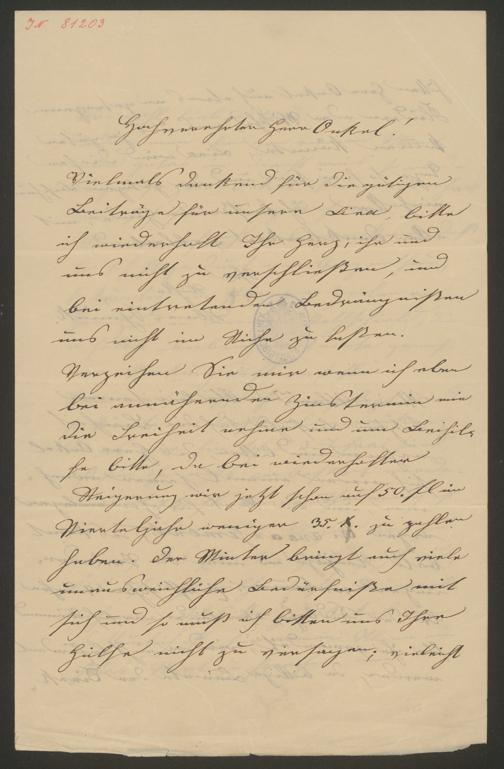 IN 81203
Hochverehrter Herr Onkel!
Vielmals dankend für die gütigen
Beiträge für unsere bitte
ich wiederholt Ihr Herz, ihr und
uns nicht zu verschließen, und
bei eintretenden Bedrängnißen
uns nicht im Stiche zu laßen.
Verzeihen Sie mir wenn ich eben
bei annähernden Zinstermin mir
die Freiheit nehme und um Beihil-
fe bitte, da bei wiederholter
Steigerung wir jetzt schon auf 50. fl im
Vierteljahr weniger 35. K. zu zahlen
haben. Der Winter bringt auch viele
unausweichliche Bedürfniße mit
sich und so muß ich bitten uns Ihre
Hülfe nicht zu versagen; vieleicht